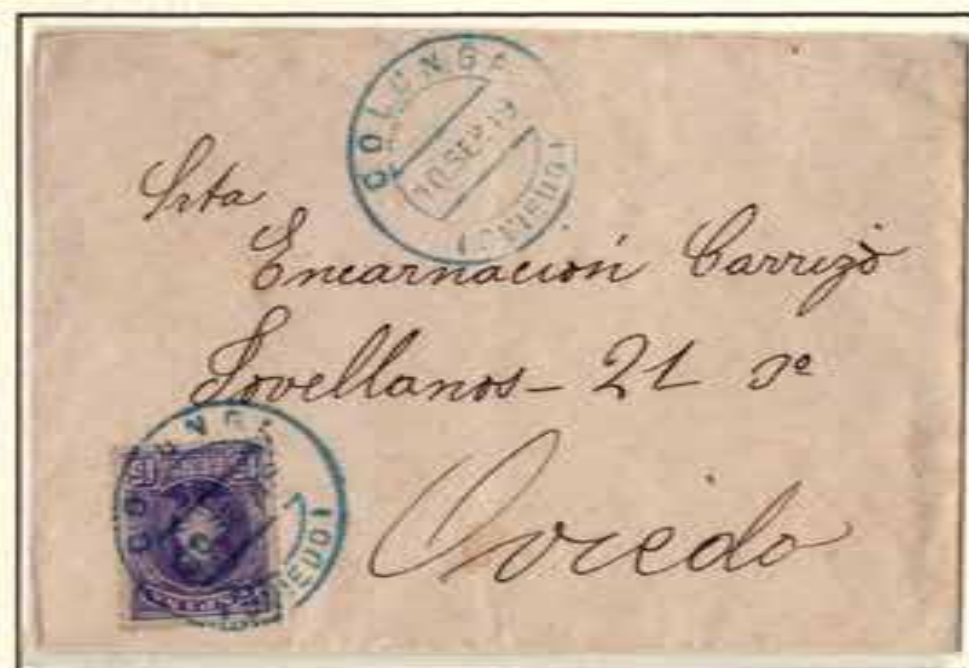 COLUNGA
(OVIEDO)
Srta
Encarnación Carrizo
Jovellanos - 21
Oviedo
COLUNGA
(OVIEDO)